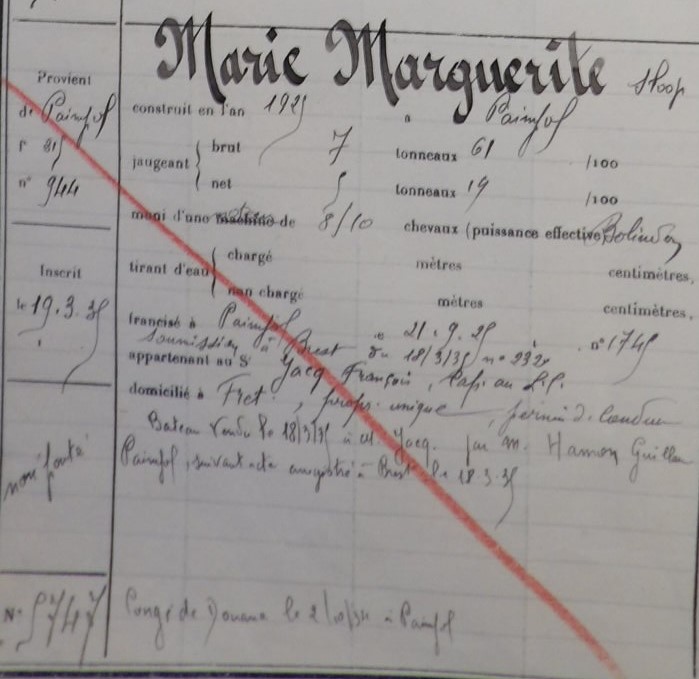 Marie Marguerite Sloop
Provient
de Paimpol
f° 315
n° 944
construit en l'an 1925 à Paimpol
jaugeant { brut 7 tonneaux 61 /100
net 5 tonneaux 19 /100
muni d'une machine de 8/10 chevaux (puissance effective) Bolinder
tirant d'eau { chargé mètres centimètres.
non chargé mètres centimètres.
Inscrit
le 19.3.35
francisé à Paimpol le 21.9.25 n° 1745
soumission à Brest du 18/3/35 n° 232
appartenant au Sr Jacq François,
domicilié à Fret, propr. unique, permis de conduire
Bateau vendu le 18/3/35 à M. Jacq. par M. Hamon Guillau
Paimpol, suivant acte enregistré à Brest le 18.3.35
non ponté
N° 5747
Congé de Douane le 2/10/34 à Paimpol